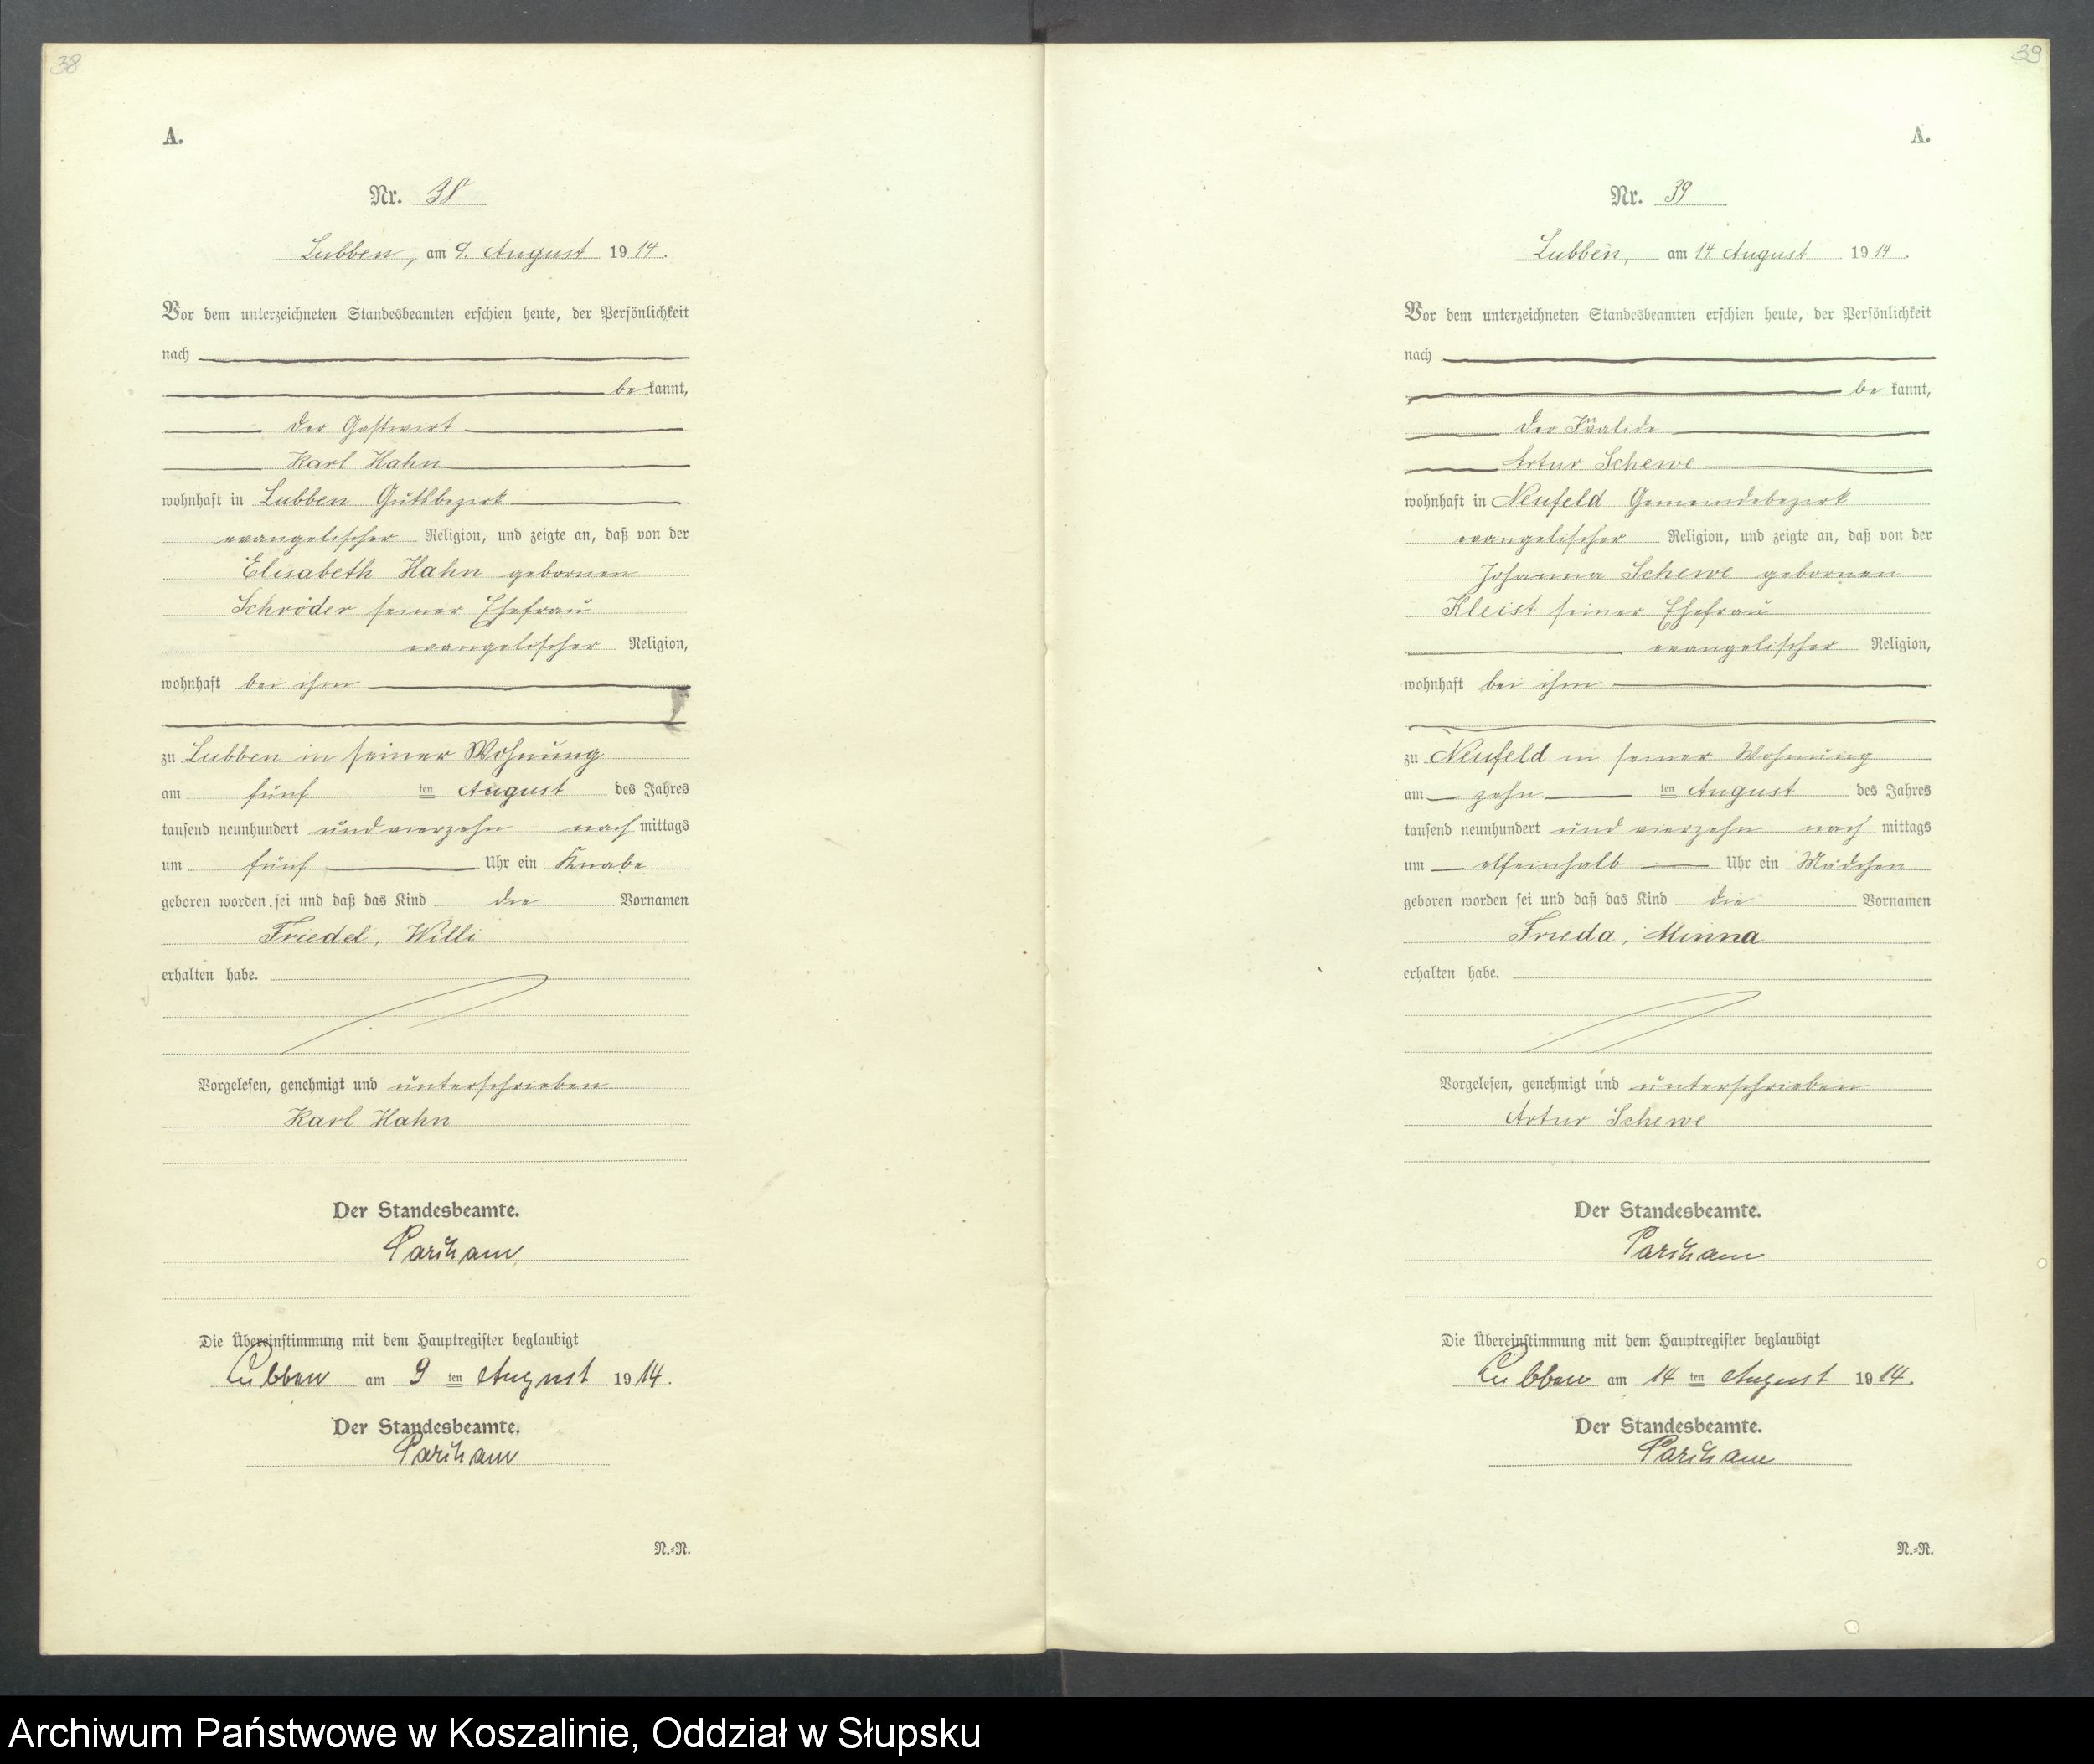 38
A.
Nr. 38
Lubben, am 9. August 1914.
Vor dem unterzeichneten Standesbeamten erschien heute, der Persönlichkeit
nach
be kannt,
der Gastwirt
Karl Hahn
wohnhaft in Lubben Gutsbezirk
evangelischer Religion, und zeigte an, daß von der
Elisabeth Hahn gebornen
Schröder seiner Ehefrau
evangelischer Religion,
wohnhaft bei ihm
zu Lubben in seiner Wohnung
am fünf ten August des Jahres
tausend neunhundert und vierzehn nach mittags
um fünf Uhr ein Knabe
geboren worden sei und daß das Kind die Vornamen
Friedel, Willi
erhalten habe.
Vorgelesen, genehmigt und unterschrieben
Karl Hahn
Der Standesbeamte.
Die Übereinstimmung mit dem Hauptregister beglaubigt
Lubben am 9 ten August 1914.
Der Standesbeamte.
N.=R.
39
A.
Nr. 39
Lubben, am 14. August 1914.
Vor dem unterzeichneten Standesbeamten erschien heute, der Persönlichkeit
nach
be kannt,
der Invalide
Artur Schewe
wohnhaft in Neufeld Gemeindebezirk
evangelischer Religion, und zeigte an, daß von der
Johanna Schewe gebornen
Kleist seiner Ehefrau
evangelischer Religion,
wohnhaft bei ihm
zu Neufeld in seiner Wohnung
am zehn ten August des Jahres
tausend neunhundert und vierzehn nach mittags
um elfeinhalb Uhr ein Mädchen
geboren worden sei und daß das Kind die Vornamen
Frieda, Minna
erhalten habe.
Vorgelesen, genehmigt und unterschrieben
Artur Schewe
Der Standesbeamte.
Die Übereinstimmung mit dem Hauptregister beglaubigt
Lubben am 14 ten August 1914.
Der Standesbeamte.
N.=R.
Archiwum Państwowe w Koszalinie, Oddział w Słupsku